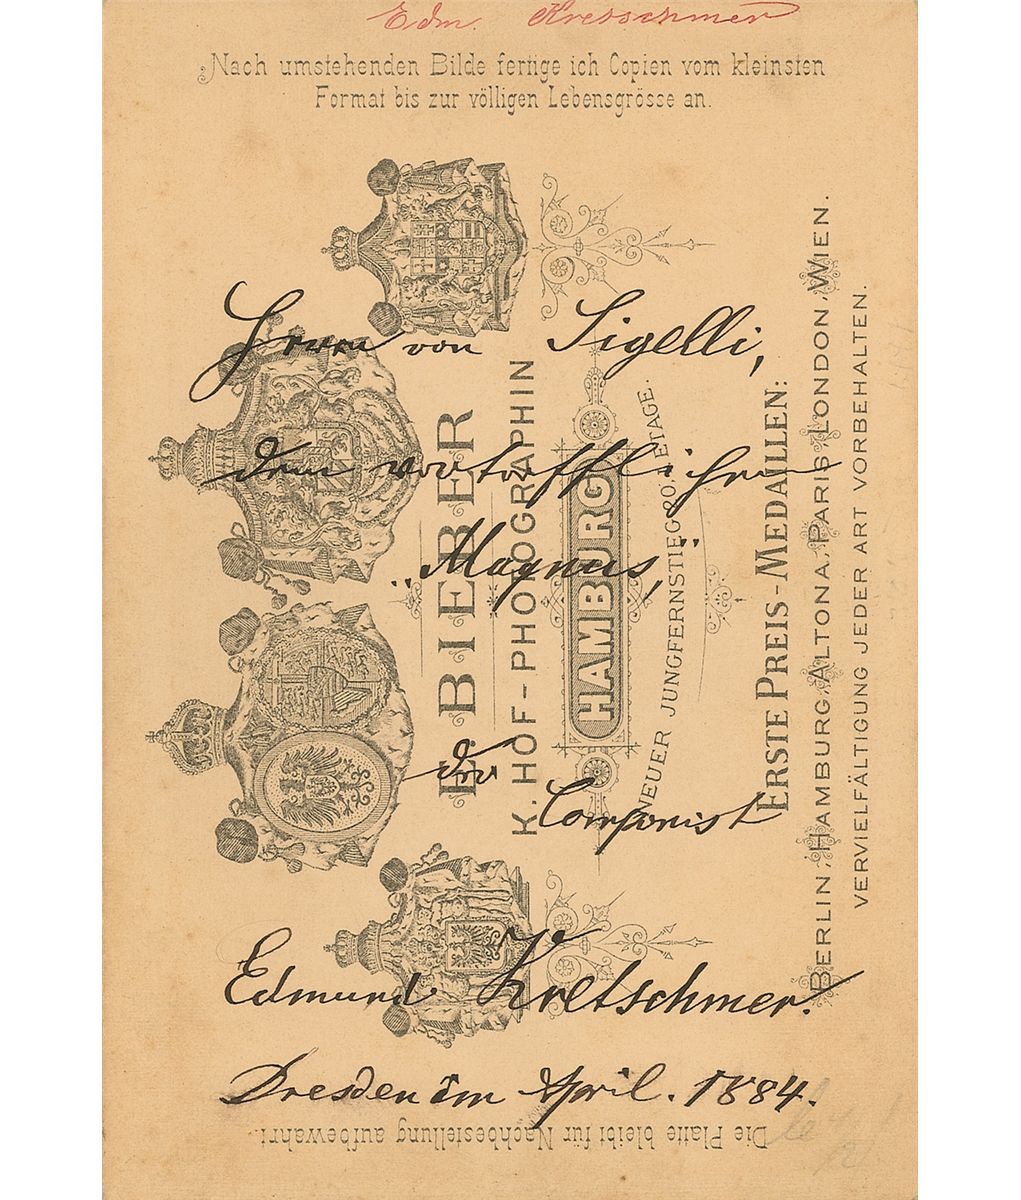 Edm. Kretschmer
Nach umstehenden Bilde fertige ich Copien vom kleinsten
Format bis zur völligen Lebensgrösse an.
Herrn von Sigelli,
dem vortrefflichen
„Magnus“
der
Componist
Edmund Kretschmer.
Dresden im April. 1884.
E. BIEBER
K. HOF-PHOTOGRAPHIN
HAMBURG
NEUER JUNGFERNSTIEG 20, ETAGE.
ERSTE PREIS-MEDAILLEN:
BERLIN, HAMBURG, ALTONA, PARIS LONDON, WIEN.
VERVIELFÄLTIGUNG JEDER ART VORBEHALTEN.
Die Platte bleibt für Nachbestellung aufbewahrt.